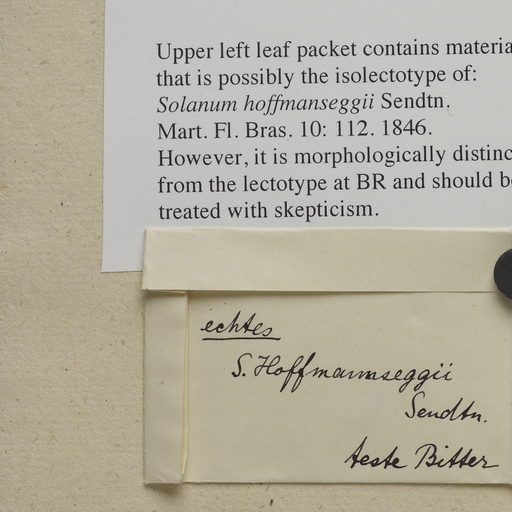 Upper left leaf packet contains materia
that is possibly the isolectotype of:
Solanum hoffmanseggii Sendtn.
Mart. Fl. Bras. 10: 112. 1846.
However, it is morphologically distinc
from the lectotype at BR and should b
treated with skepticism.
echtes
S. Hoffmannseggii
Sendtn.
teste Bitter